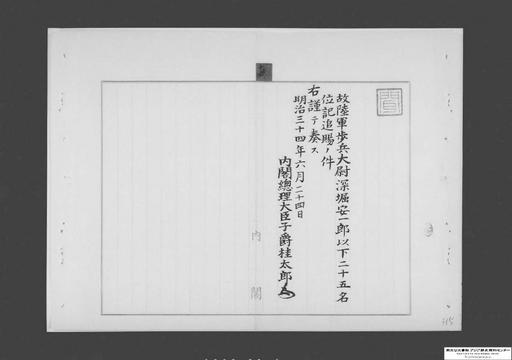 聞
故陸軍歩兵大尉深堀安一郎以下二十五名
位記追賜ノ件
右謹テ奏ス
明治三十四年六月二十四日
内閣總理大臣子爵桂太郎
内閣